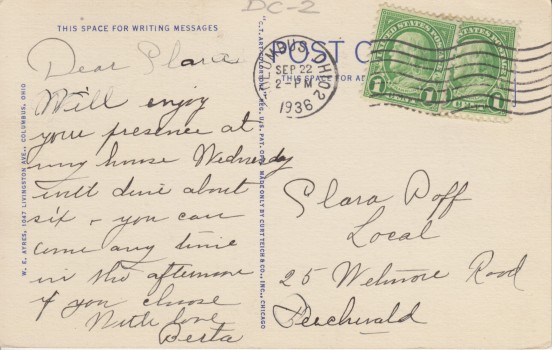 DC-2
THIS SPACE FOR WRITING MESSAGES
Dear Clara
Will enjoy
your presence at
my house Wednesday
will dine about
six & you can
come any time
in the afternoon
if you choose
With love
Berta
W. E. AYRES, 1047 LIVINGSTON AVE., COLUMBUS, OHIO
"C.T. ART-COLORTONE" REG. U.S. PAT. OFF. MADE ONLY BY CURT TEICH & CO., INC., CHICAGO
POST C
THIS SPACE FOR AD
COLUMBUS, OHIO 2
SEP 22
2-PM
1936
UNITED STATES POSTAGE
1 CENT 1
Clara Poff
Local
25 Webmore Road
Beechwald